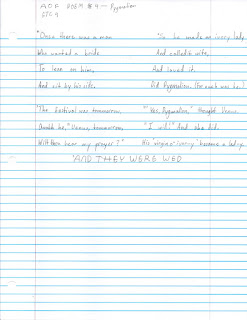 AOF POEM #4 — Pygmalion
"Once there was a man
Who wanted a bride
To lean on him,
And sit by his side.
"So he made an ivory lady.
And called it wife,
And loved it.
Did Pygmalion. (For such was he.)
"The festival was tomorrow,
Quoth he, "Venus, tomorrow,
Wilt thou hear my prayer?"
"Yes, Pygmalion," thought Venus.
"I will!" And she did.
His "virgin o' ivory" became a lady.
"AND THEY WERE WED